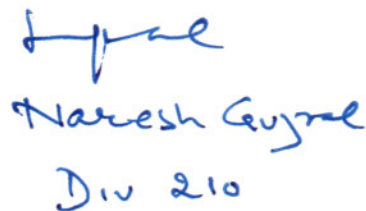 Naresh Gujral
Div 210